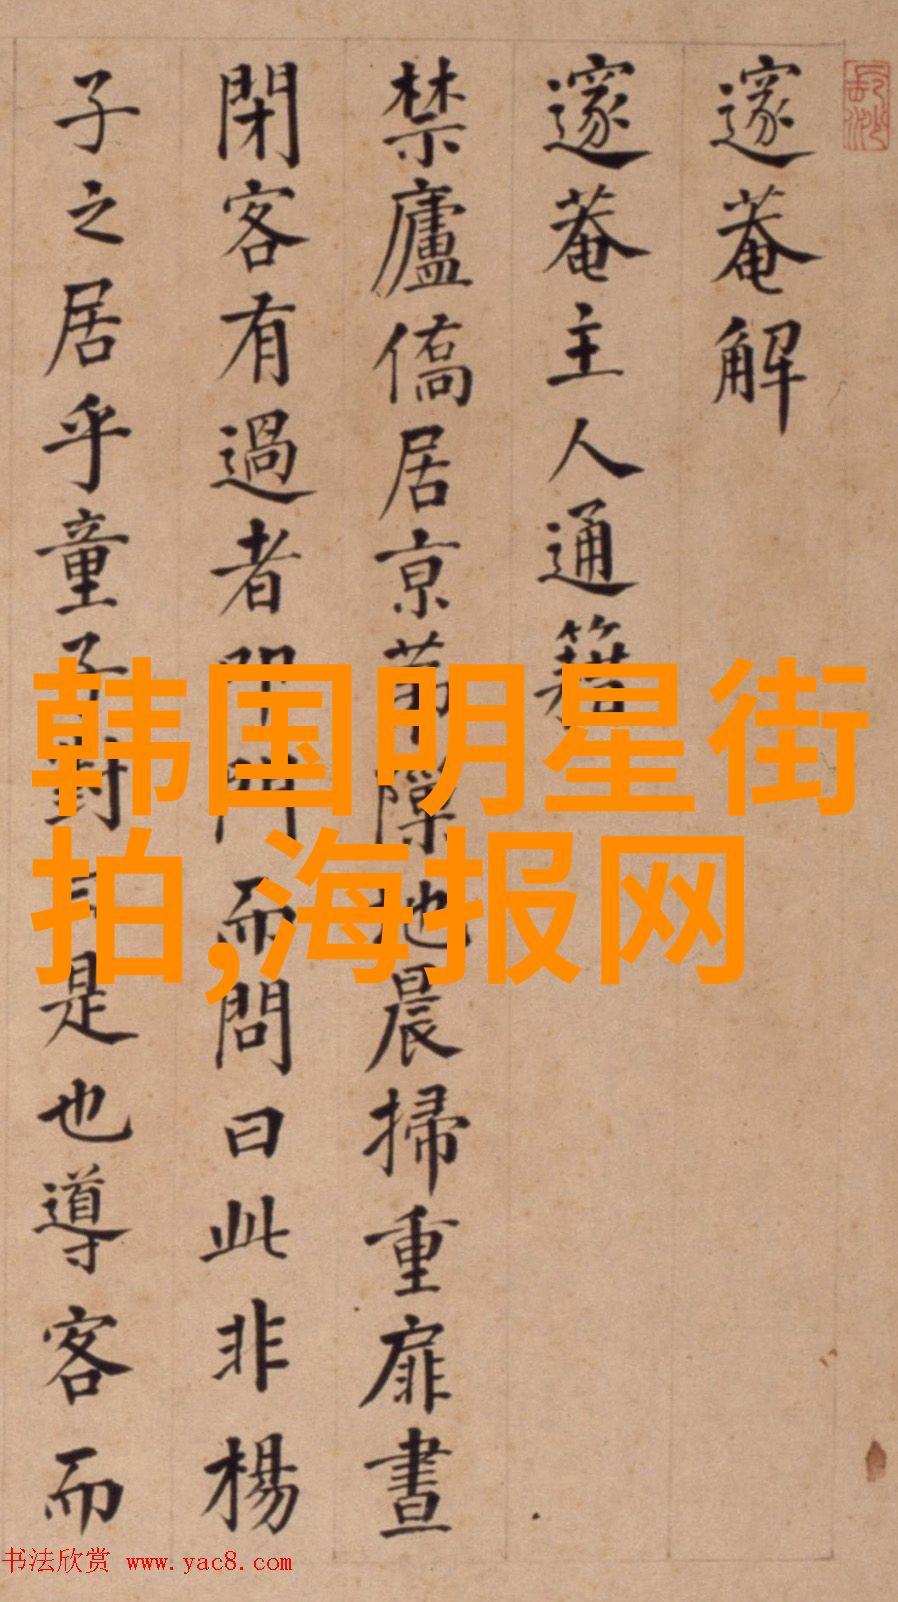 邃菴解
邃菴主人通籍
禁廬僑居京苐隙地晨掃重扉晝
閉客有過者叩門而問曰此非楊
子之居乎童子對曰是也導客而
韩国明星街
拍,海报网
书法欣赏 www.yac8.com